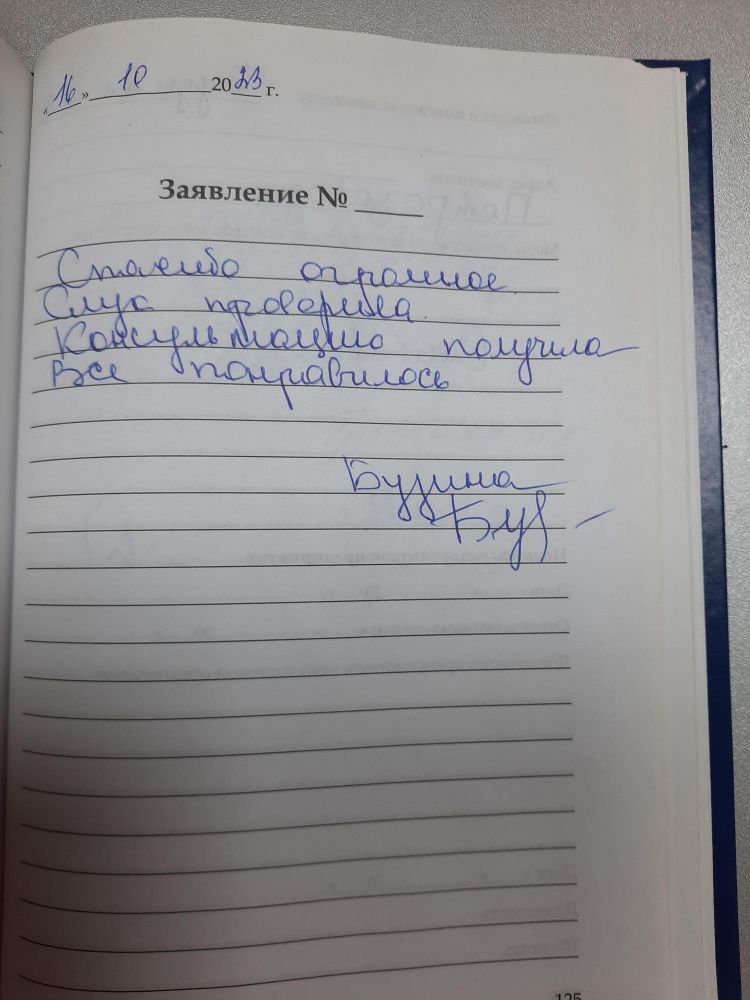 «16» 10 2023 г.
Заявление №
Спасибо огромное.
Слух проверила.
Консультацию получила
Все понравилось
Бузина
Буз
125